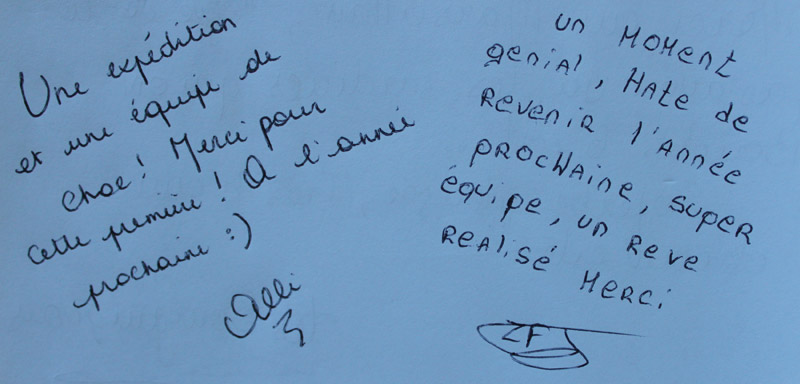 Une expédition
et une équipe de
choc! Merci pour
cette première! A l'année
prochaine :)
un MOMENT
genial, Hate de
Revenir l'Année
PROCHAine, super
équipe, un Reve
Realisé Merci